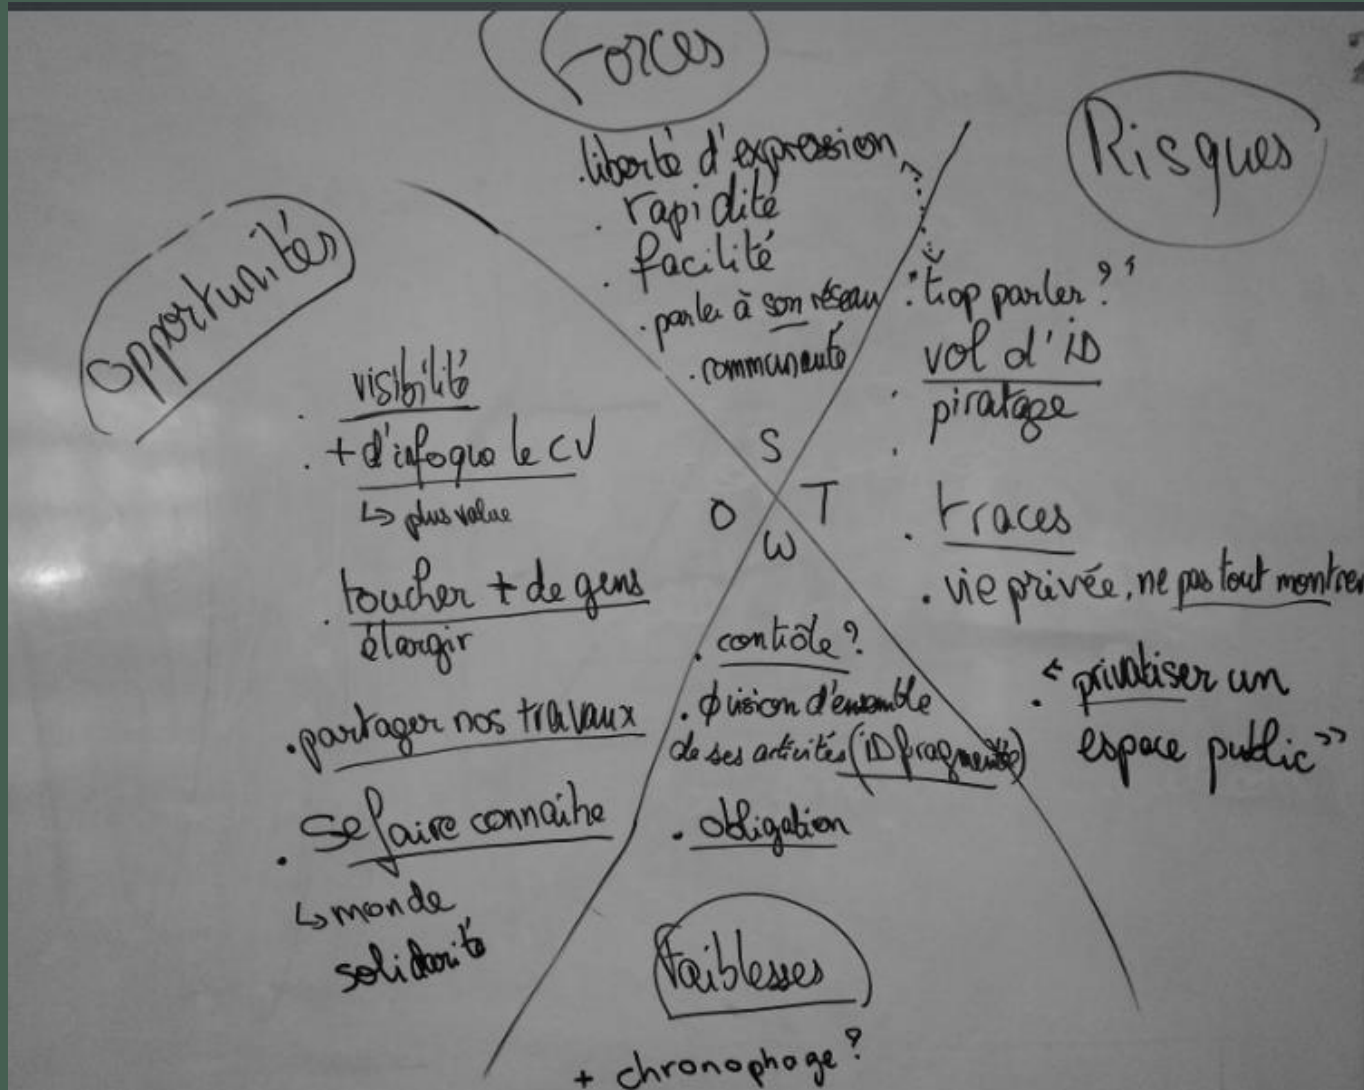 Forces
. liberté d'expression
. rapidité
. facilité
. parler à son réseau
. communauté
Risques
. "trop parler ?"
. vol d'iD
. piratage
. traces
. vie privée, ne pas tout montrer
. « privatiser un
espace public »
Opportunités
. visibilité
. + d'info que le CV
↳ plus value
. toucher + de gens
élargir
. partager nos travaux
. se faire connaître
↳ monde
solidarité
S
O T
W
. contrôle ?
. ϕ vision d'ensemble
de ses activités (iD fragmentée)
. obligation
Faiblesses
+ chronophage ?